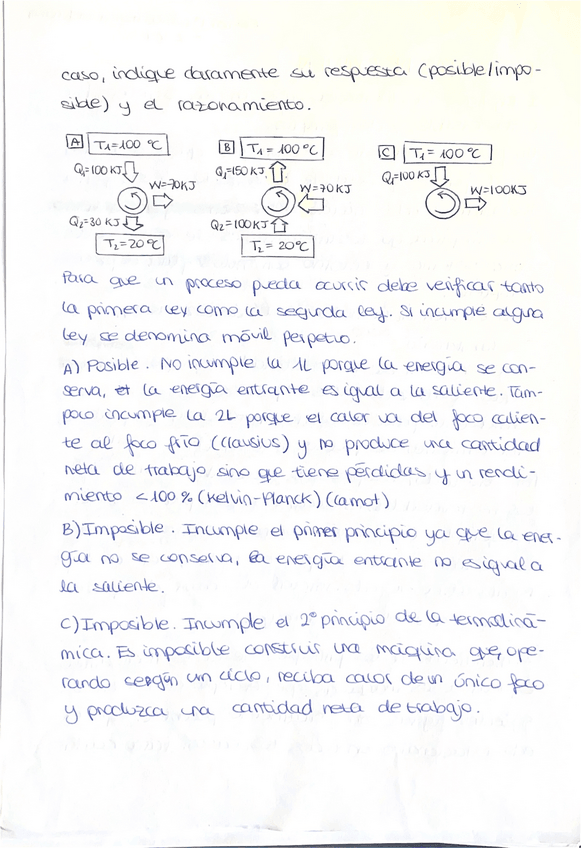 caso, indique claramente su respuesta (posible/impo-
sible) y el razonamiento.
A T₁=100 ºC
Q₁=100 KJ
W=70KJ
Q₂=30 KJ
T₂=20ºC
B T₁=100ºC
Q₁=150KJ
W=70KJ
Q₂=100KJ
T₂=20ºC
C T₁=100ºC
Q₁=100 KJ
W=100KJ
Para que un proceso pueda ocurrir debe verificar tanto
la primera ley como la segunda ley. Si incumple alguna
ley se denomina móvil perpetuo.
A) Posible. No incumple la 1L porque la energía se con-
serva, la energía entrante es igual a la saliente. Tam-
poco incumple la 2L porque el calor va del foco calien-
te al foco frío (Clausius) y no produce una cantidad
neta de trabajo sino que tiene pérdidas y un rendi-
miento <100% (Kelvin-Planck) (Carnot)
B) Imposible. Incumple el primer principio ya que la ener-
gía no se conserva, la energía entrante no es igual a
la saliente.
C) Imposible. Incumple el 2º principio de la termodiná-
mica. Es imposible construir una máquina que, ope-
rando según un ciclo, reciba calor de un único foco
y produzca una cantidad neta de trabajo.